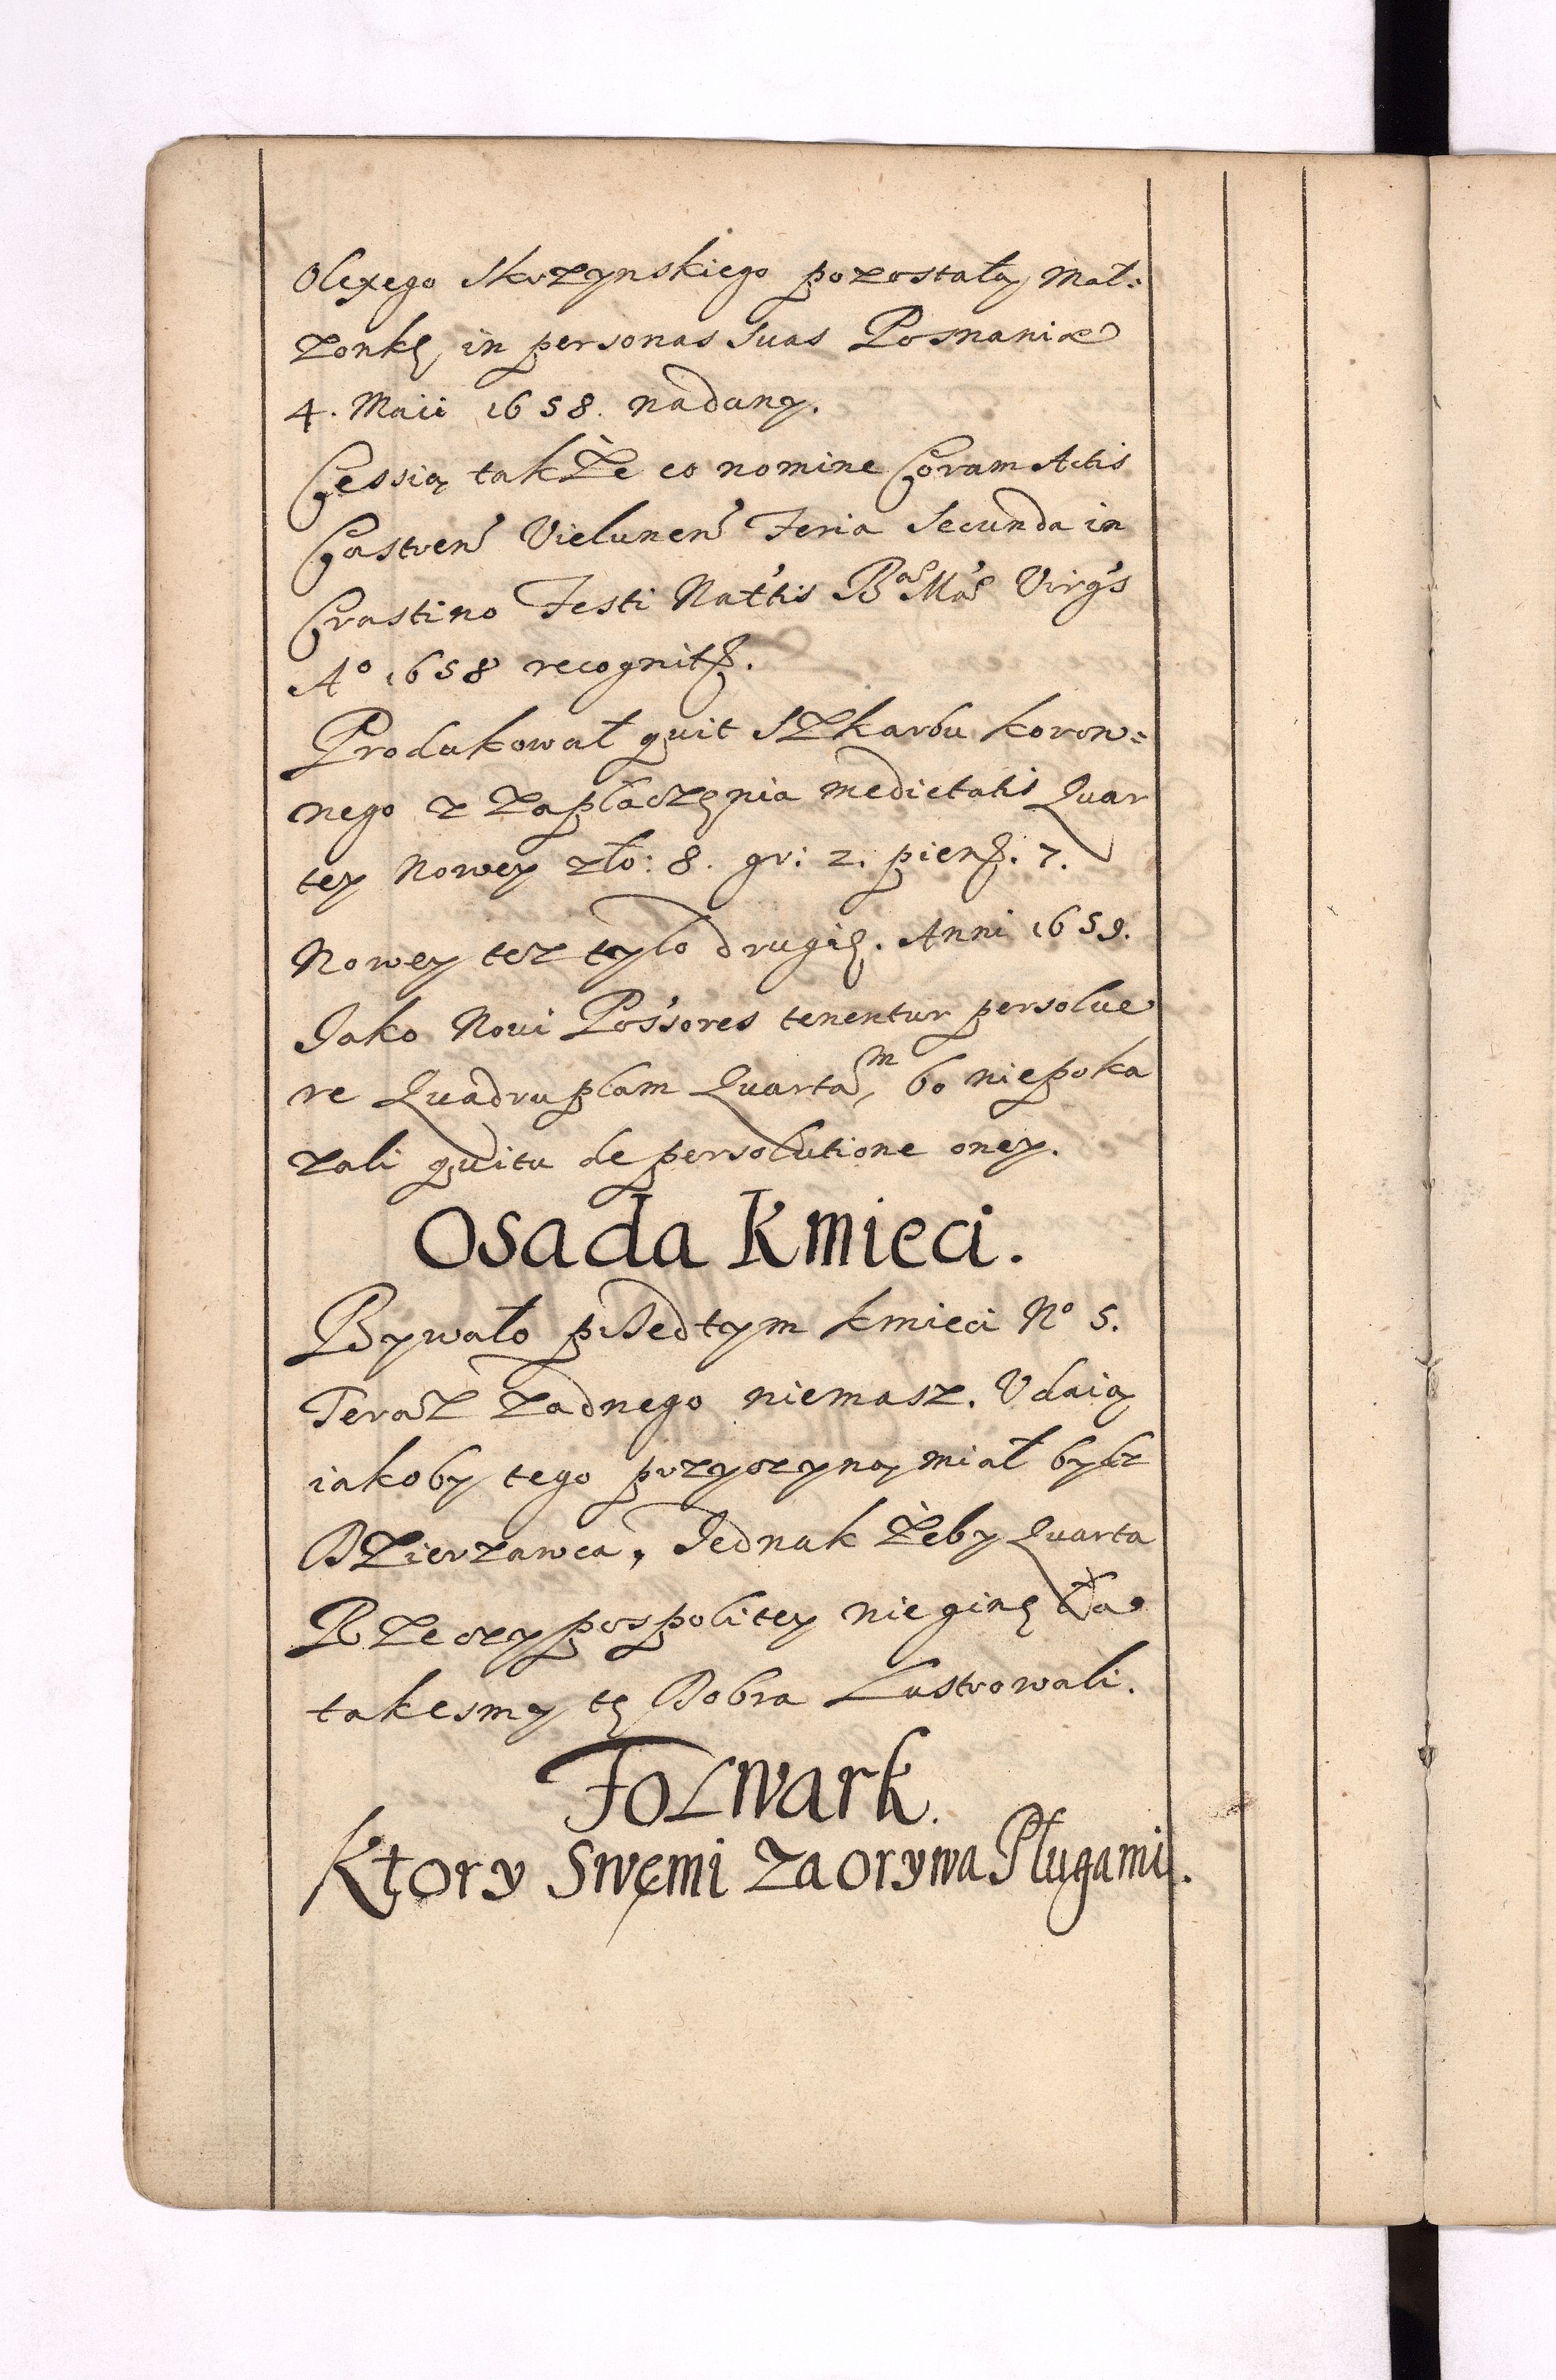 Olexego Skrzynskiego pozostałą Mał:
zonkę, in personas suas Posnaniæ
4. Maii 1658. nadany.
Cessią także eo nomine Coram Actis
Castren Vielunen Feria Secunda in
Crastino Festi Nat'tis Bae Mae Virg's
Ao 1658 recognitą.
Produkował quit Szkarbu koron:
nego z zapłaczęnia medietatis Quar
tey Nowey zło: 8. gr: 2. pienę. 7.
Nowey tez tylo drugię. Anni 1659.
Jako Noui Pos'sores tenentur persolue
re Quadruplam Quartam, bo niepoka
zali quitu de persolutione oney.
Osada Kmieci.
Bywało przedtym kmieci No 5.
Teraz zadnego niemasz. Udaią
iakoby tego przyczyną miał bydz
Dzierzawca, Jednak żeby Quarta
Rzeczypospolitey nieginęła
takesmy tę Dobra Lustrowali.
Folwark.
Ktory Swemi zaorywa Pługami.